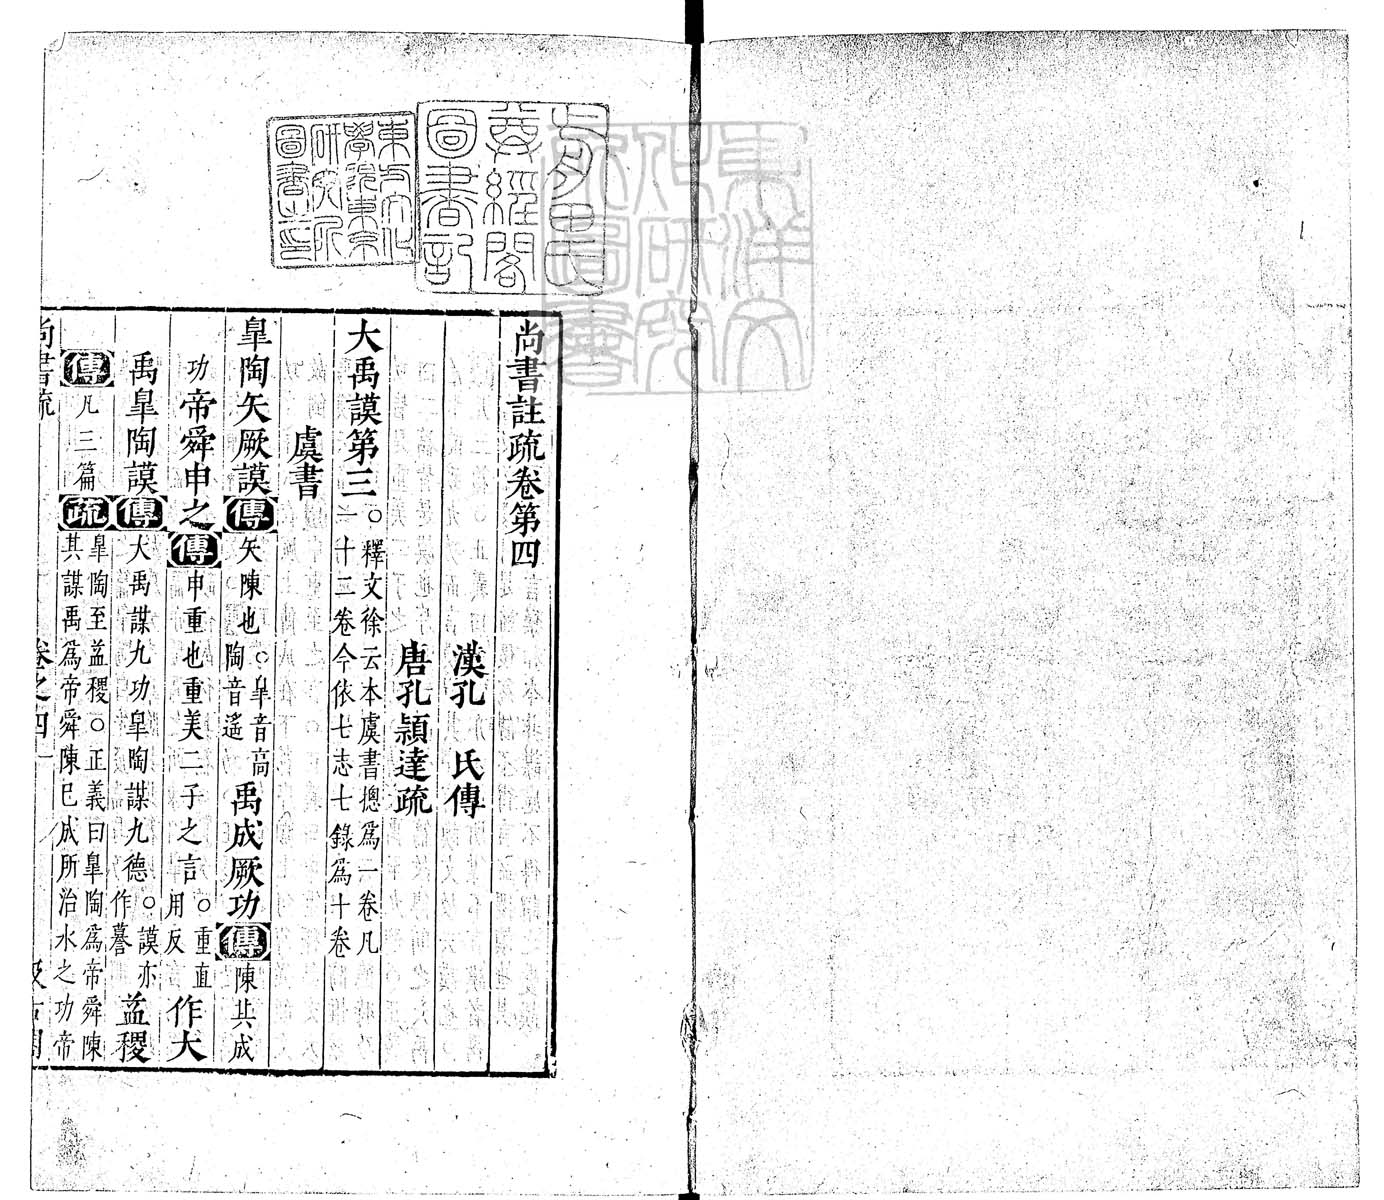 尚書註疏卷第四
漢孔　氏傳
唐孔穎達疏
大禹謨第三○釋文徐云本虞書摠爲一卷凡
十二卷今依七志七錄爲十卷
虞書
皐陶矢厥謨傳矢陳也○皐音高
陶音遙
禹成厥功傳陳其成
功帝舜申之傳申重也重美二子之言○重直
用反
作大
禹皐陶謨傳大禹謀九功皐陶謀九德○謨亦
作謩
益稷
傳凡三篇疏皐陶至益稷○正義曰皐陶爲帝舜陳
其謀禹爲帝舜陳已成所治水之功帝
尚書疏
卷之四
一
汲古閣
前田氏
尊經閣
圖書記
東方文化
學院東京
研究所
圖書之印
東洋文
化研究
所圖書